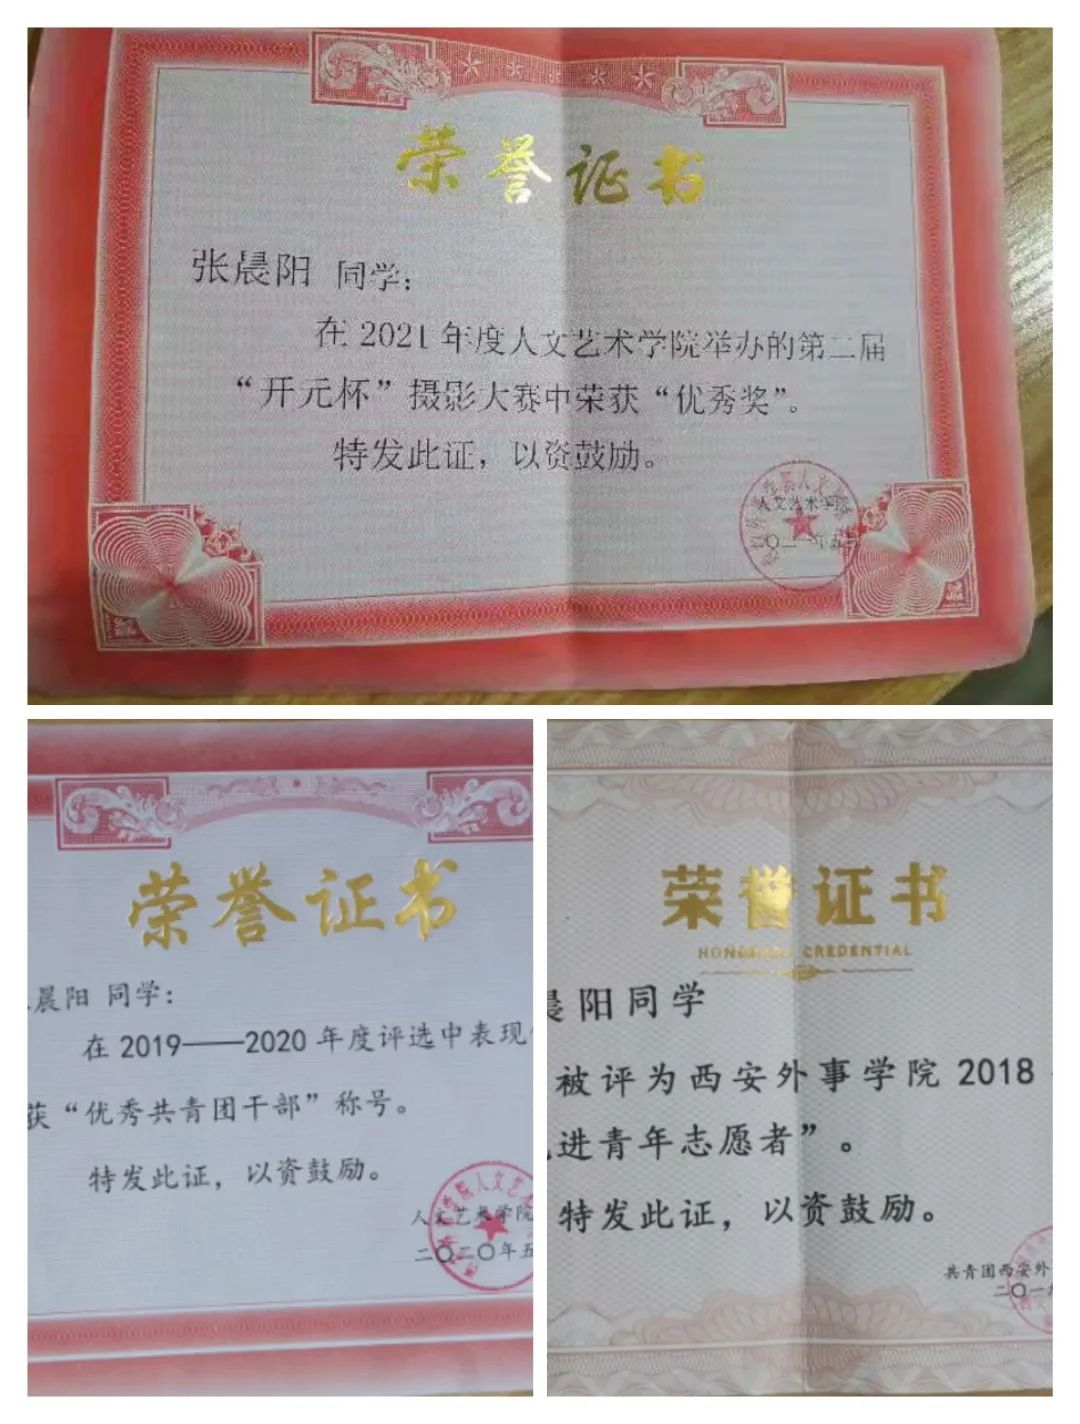 荣誉证书
张晨阳 同学：
在 2021 年度人文艺术学院举办的第二届
“开元杯”摄影大赛中荣获“优秀奖”。
特发此证，以资鼓励。
人文艺术学院
二〇二一年五月
荣誉证书
晨阳 同学：
在 2019——2020 年度评选中表现
获“优秀共青团干部”称号。
特发此证，以资鼓励。
人文艺术学院
二〇二〇年五
荣誉证书
CREDENTIAL
晨阳同学
被评为西安外事学院 2018
进青年志愿者”。
特发此证，以资鼓励。
共青团西安外
二〇一九